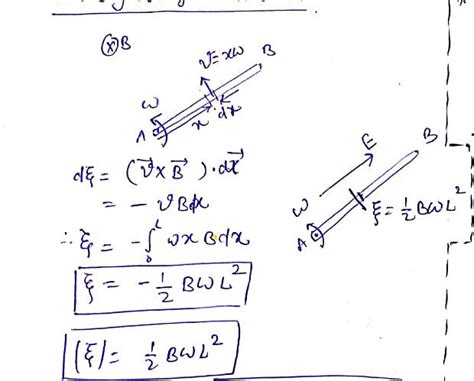 ⓧB
B
v=xω
ω
x
dx
A
dξ = (v⃗ × B⃗).dx⃗
= - vBdx
∴ ξ = -∫₀ᴸ ωx B dx
ξ = - 1/2 BωL²
|ξ| = 1/2 BωL²
E
B
ω
A
ξ = 1/2 BωL²